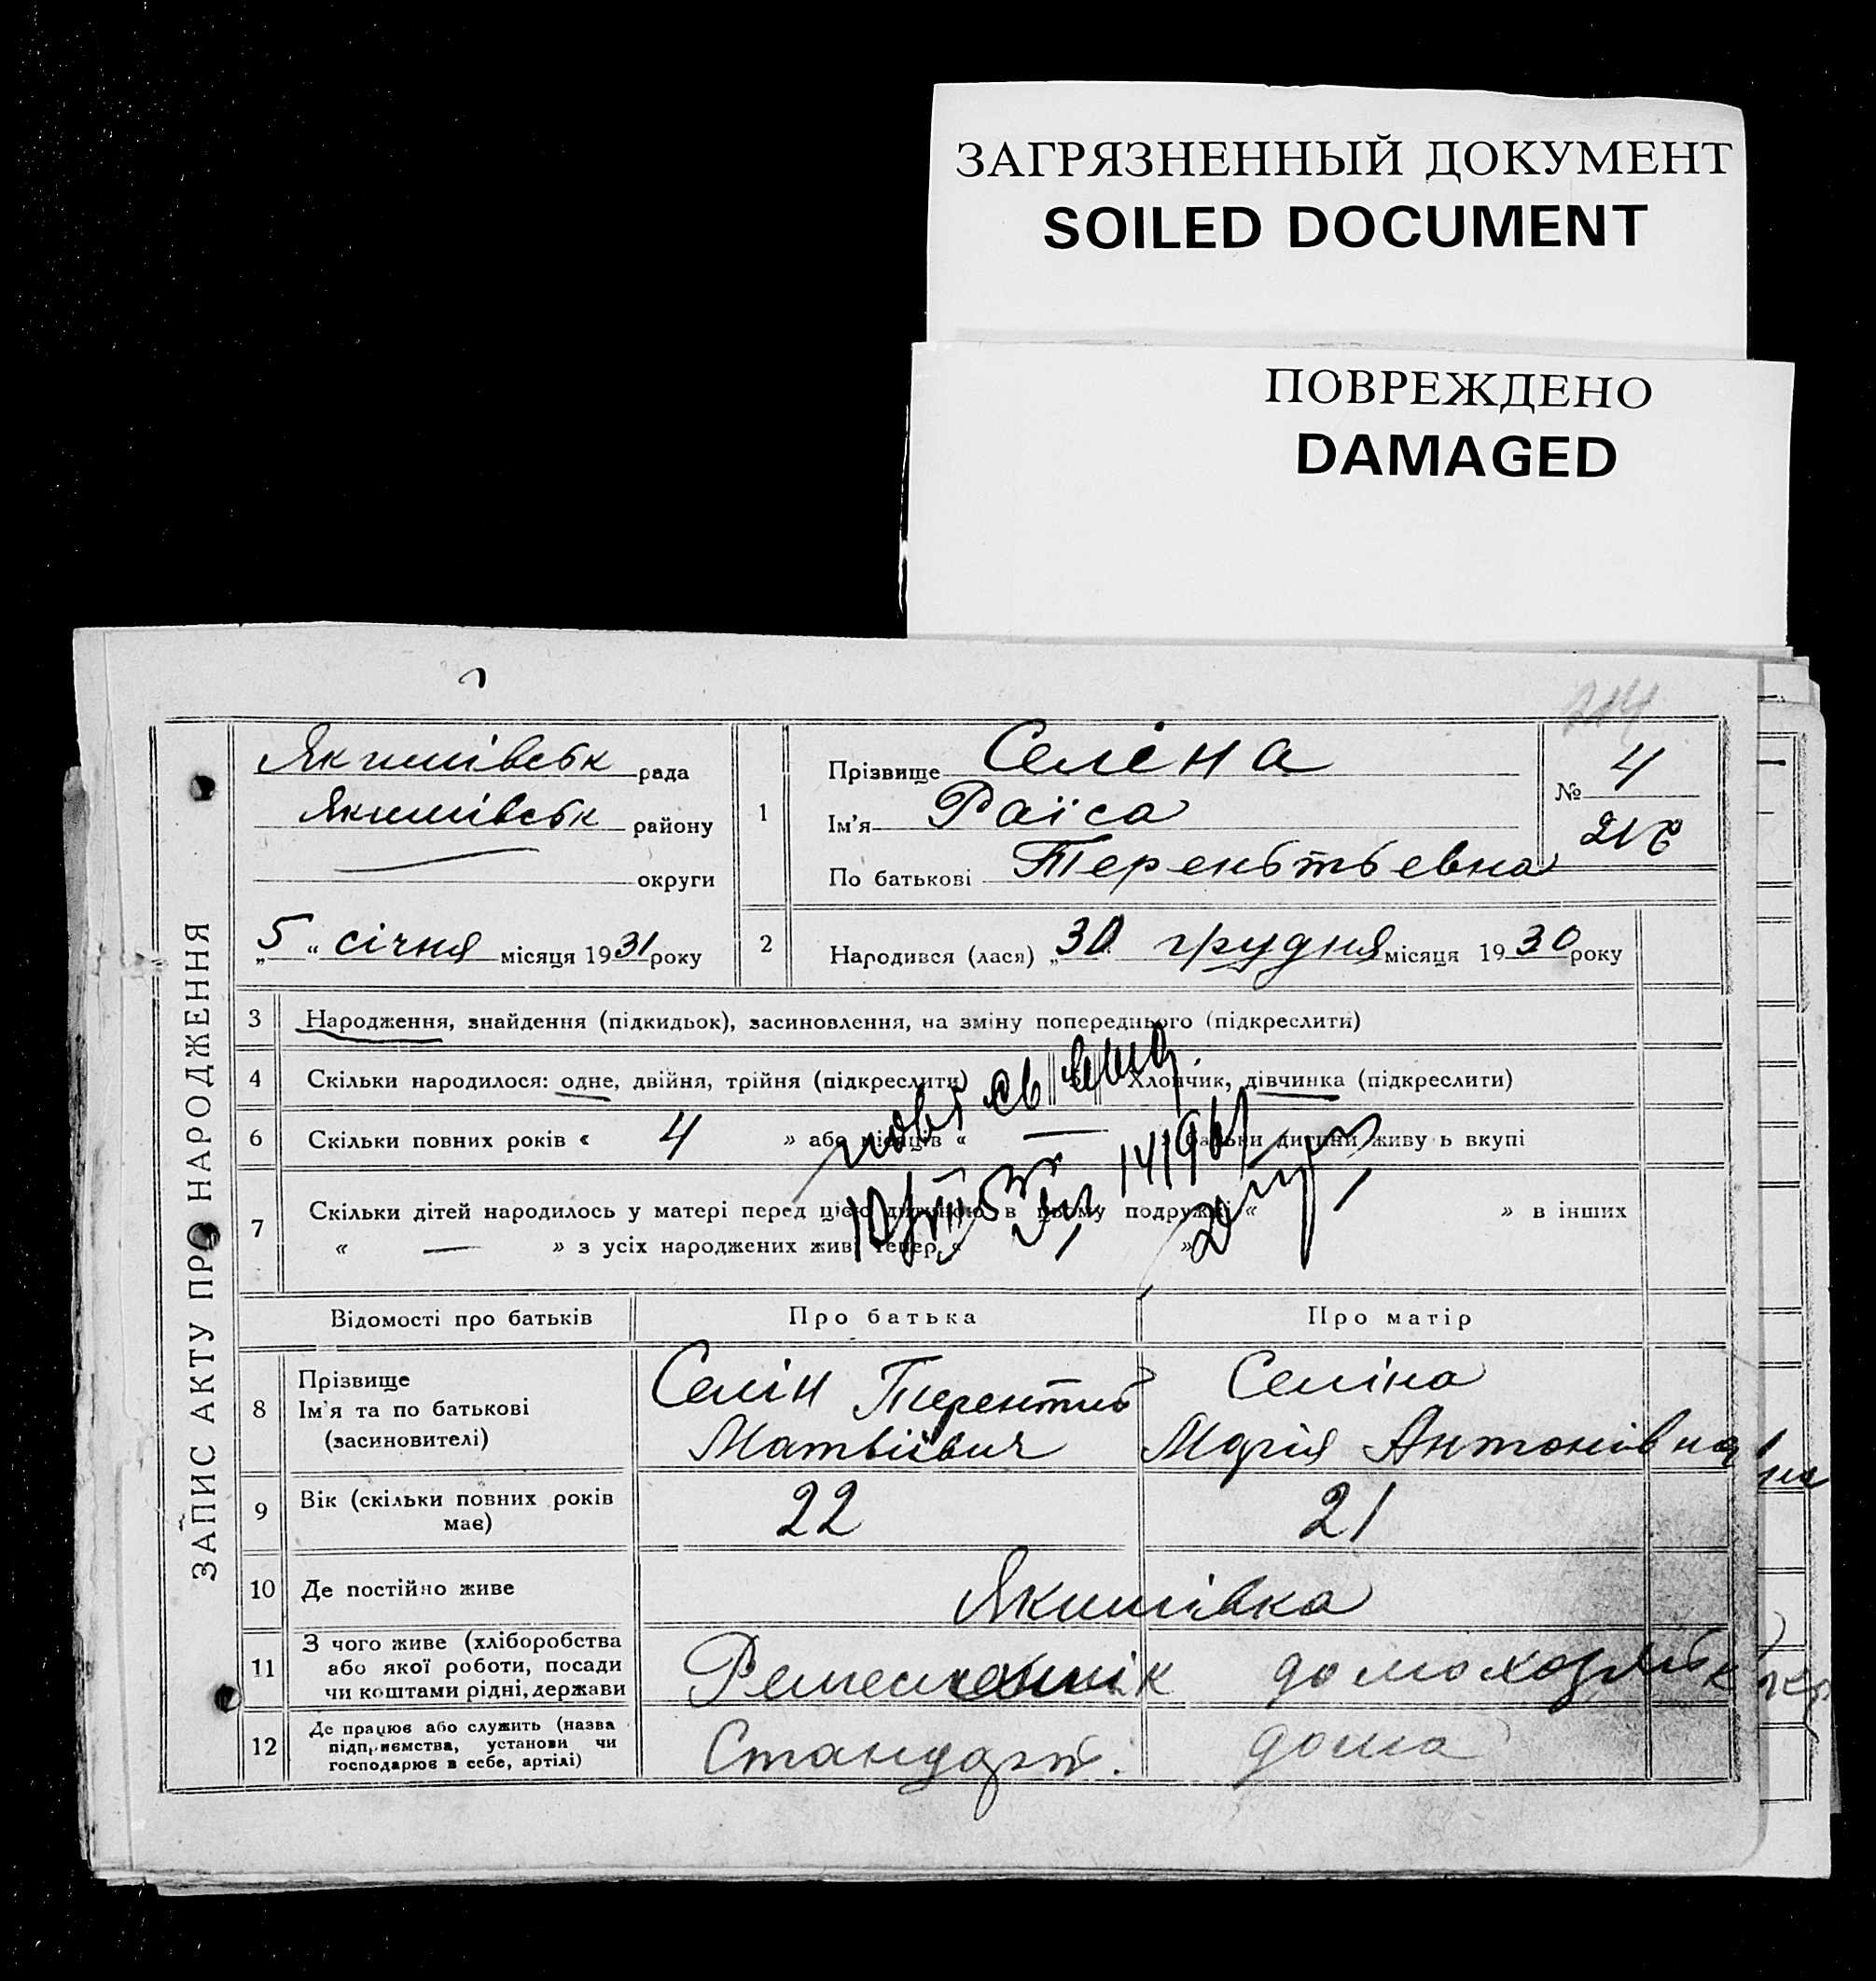 ЗАГРЯЗНЕННЫЙ ДОКУМЕНТ
SOILED DOCUMENT
ПОВРЕЖДЕНО
DAMAGED
ЗАПИС АКТУ ПРО НАРОДЖЕННЯ
Якимівськ рада
Якимівськ району
округи
„5“ січня місяця 1931 року
1
Прізвище Селіна
Ім'я Раїса
По батькові Терентьевна
№ 4
2 Народився (лася) „30 грудня місяця 1930 року
3 Народження, знайдення (підкидьок), засиновлення, на зміну попереднього (підкреслити)
4 Скільки народилося: одне, двійня, трійня (підкреслити) Хлопчик, дівчинка (підкреслити)
6 Скільки повних років « 4 » або місяців « — » батьки дитини живу ь вкупі
7 Скільки дітей народилось у матері перед цією дитиною в цьому подружжі « » в інших
« — » з усіх народжених живі тепер « »
Відомості про батьків Про батька Про матір
8 Прізвище
Ім'я та по батькові
(засиновителі)
Селін Терентий
Матвіївич
Селіна
Марія Антонівна
9 Вік (скільки повних років
має)
22 21
10 Де постійно живе Якимівка
11 З чого живе (хліборобства
або якої роботи, посади
чи коштами рідні, держави
12 Де працює або служить (назва
підприємства, установи чи
господарює в себе, артілі)
Стандарт. дома